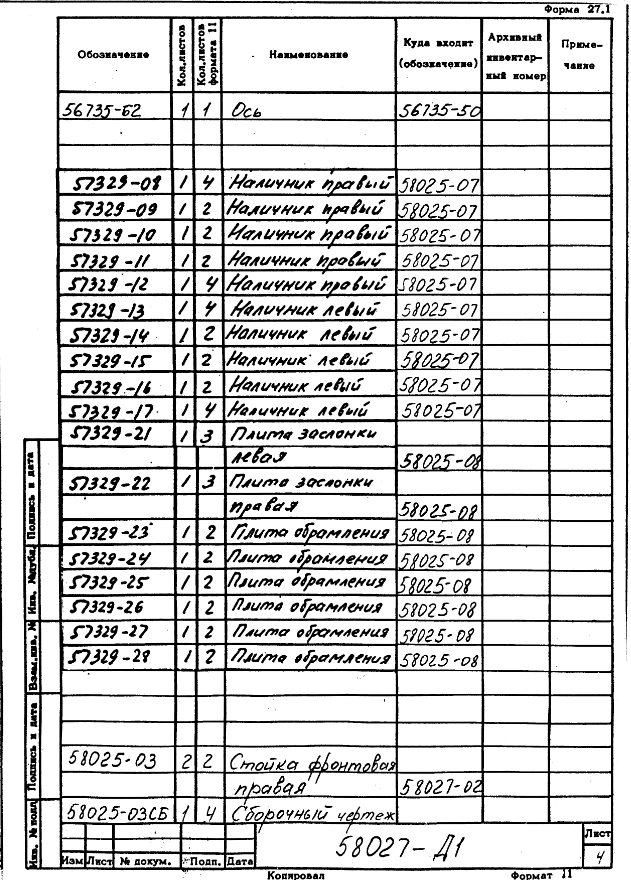 Форма 27.1
Обозначение Кол.листов Кол.листов формата 11 Наименование Куда входит (обозначение) Архивный инвентарный номер Примечание
56735-62 1 1 Ось 56735-50
57329-08 1 4 Наличник правый 58025-07
57329-09 1 2 Наличник правый 58025-07
57329-10 1 2 Наличник правый 58025-07
57329-11 1 2 Наличник правый 58025-07
57329-12 1 4 Наличник правый 58025-07
57329-13 1 4 Наличник левый 58025-07
57329-14 1 2 Наличник левый 58025-07
57329-15 1 2 Наличник левый 58025-07
57329-16 1 2 Наличник левый 58025-07
57329-17 1 4 Наличник левый 58025-07
57329-21 1 3 Плита заслонки
левая 58025-08
57329-22 1 3 Плита заслонки
правая 58025-08
57329-23 1 2 Плита обрамления 58025-08
57329-24 1 2 Плита обрамления 58025-08
57329-25 1 2 Плита обрамления 58025-08
57329-26 1 2 Плита обрамления 58025-08
57329-27 1 2 Плита обрамления 58025-08
57329-28 1 2 Плита обрамления 58025-08
58025-03 2 2 Стойка фронтовая
правая 58027-02
58025-03СБ 1 4 Сборочный чертеж
Подпись и дата
Инв. №дубл.
Взам.инв. №
Подпись и дата
Инв. №подл
Изм Лист № докум. Подп. Дата
58027-Д1
Лист
4
Копировал Формат 11